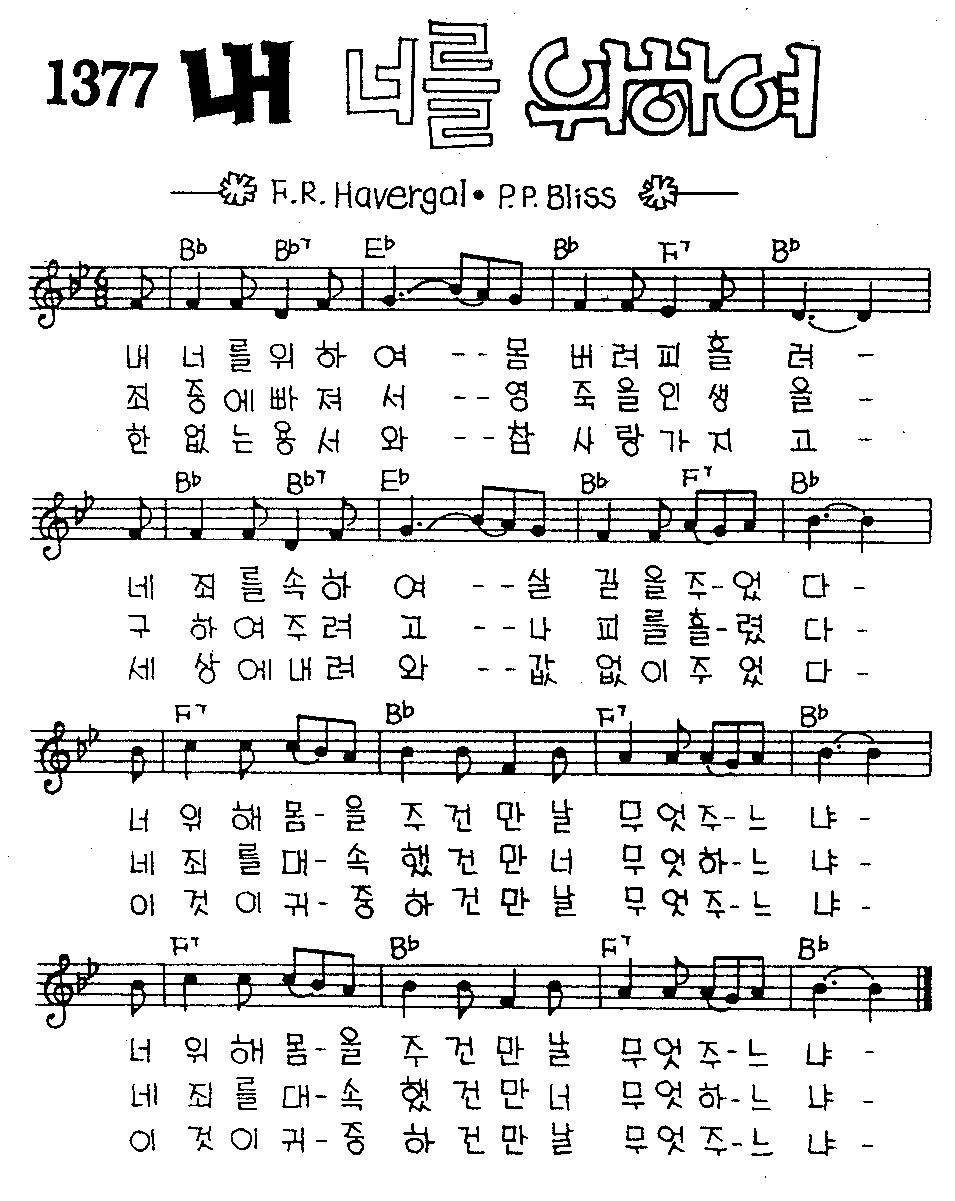 1377 내 너를 위하여
F.R. Havergal • P.P. Bliss
B♭ B♭7 E♭ B♭ F7 B♭
내 너를위하 여 -- 몸 버려피흘 려 -
죄 중에빠져 서 -- 영 죽을인생 을 -
한 없는용서 와 -- 참 사랑가지 고 -
B♭ B♭7 E♭ B♭ F7 B♭
네 죄를속하 여 -- 살 길을주-었 다 -
구 하여주려 고 -- 나 피를흘-렸 다 -
세 상에내려 와 -- 값 없이주었 다 -
F7 B♭ F7 B♭
너 위해몸-을 주건만날 무엇주-느 냐 -
네 죄를대-속 했건만너 무엇하-느 냐 -
이 것이귀-중 하건만날 무엇주-느 냐 -
F7 B♭ F7 B♭
너 위해몸-을 주건만날 무엇주-느 냐 -
네 죄를대-속 했건만너 무엇하-느 냐 -
이 것이귀-중 하건만날 무엇주-느 냐 -